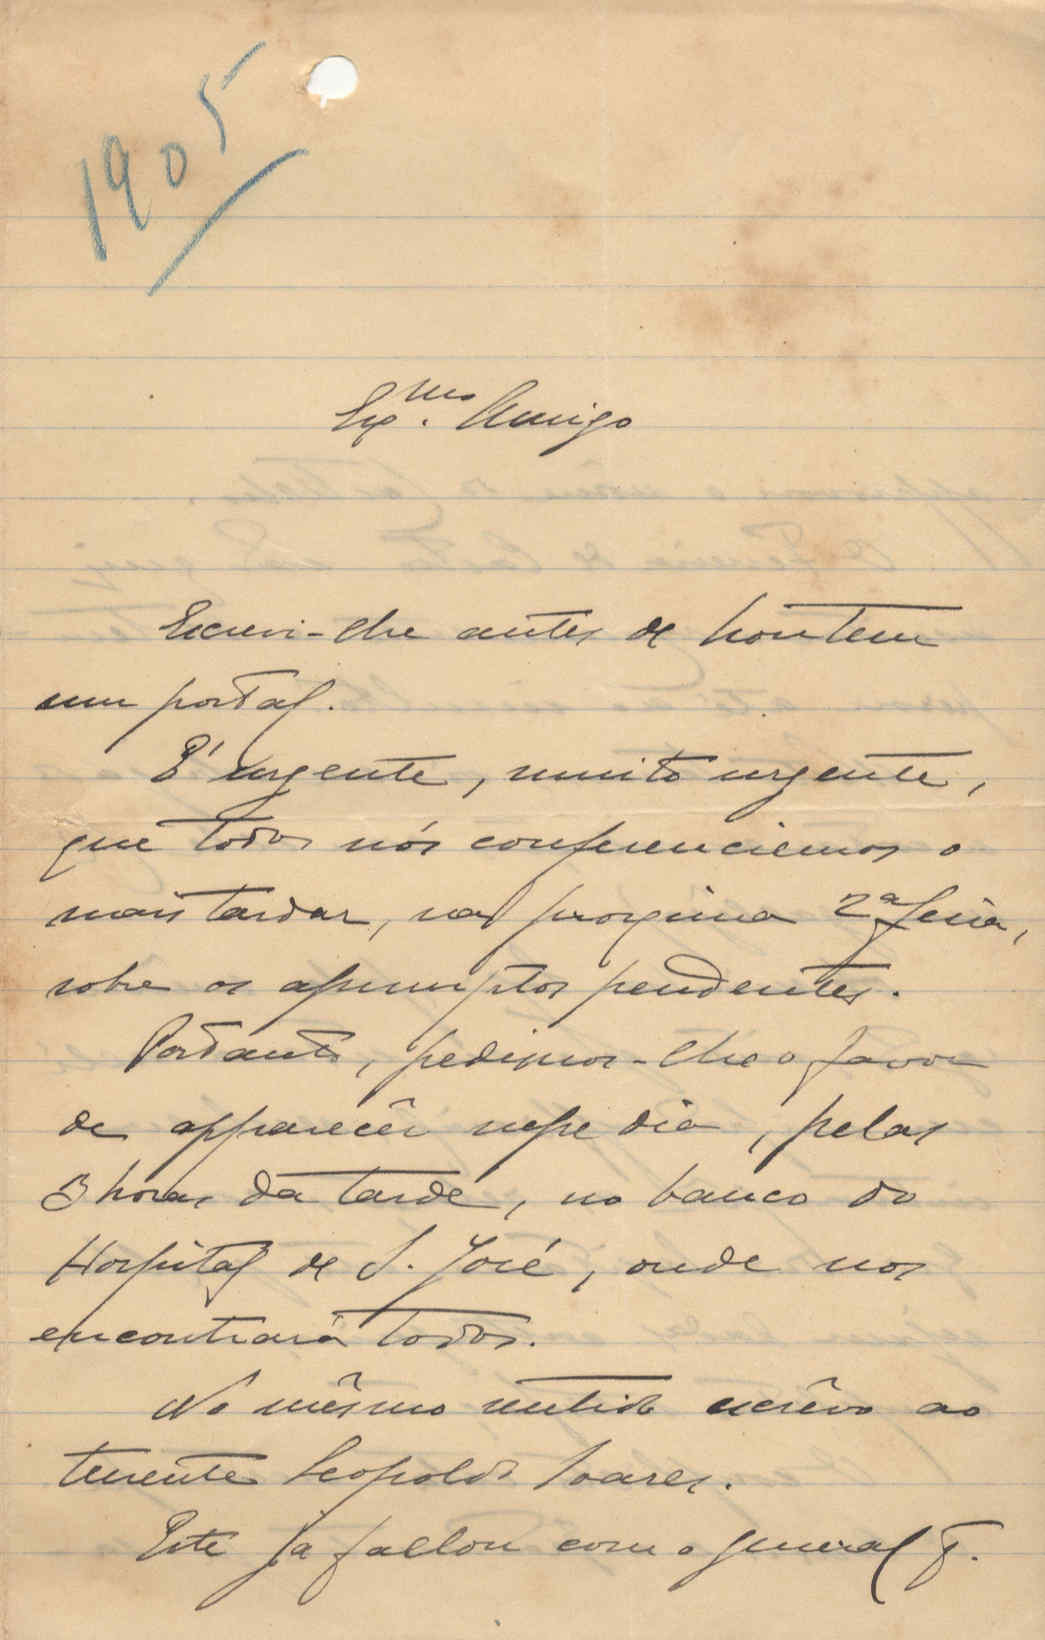 1905
Exmo. Amigo
Escrevi-lhe antes de hontem
um postal.
E' urgente, muito urgente,
que todos nós conferenciemos o
mais tardar, na proxima 2ª feira,
sobre os assumptos pendentes.
Portanto, pedimos-lhe o favor
de apparecêr nesse dia, pelas
3 horas da tarde, no banco do
Hospital de S. José, onde nos
encontrará todos.
No mêsmo sentido escrêvo ao
tenente Leopoldo Soares.
Este já fallou com o general